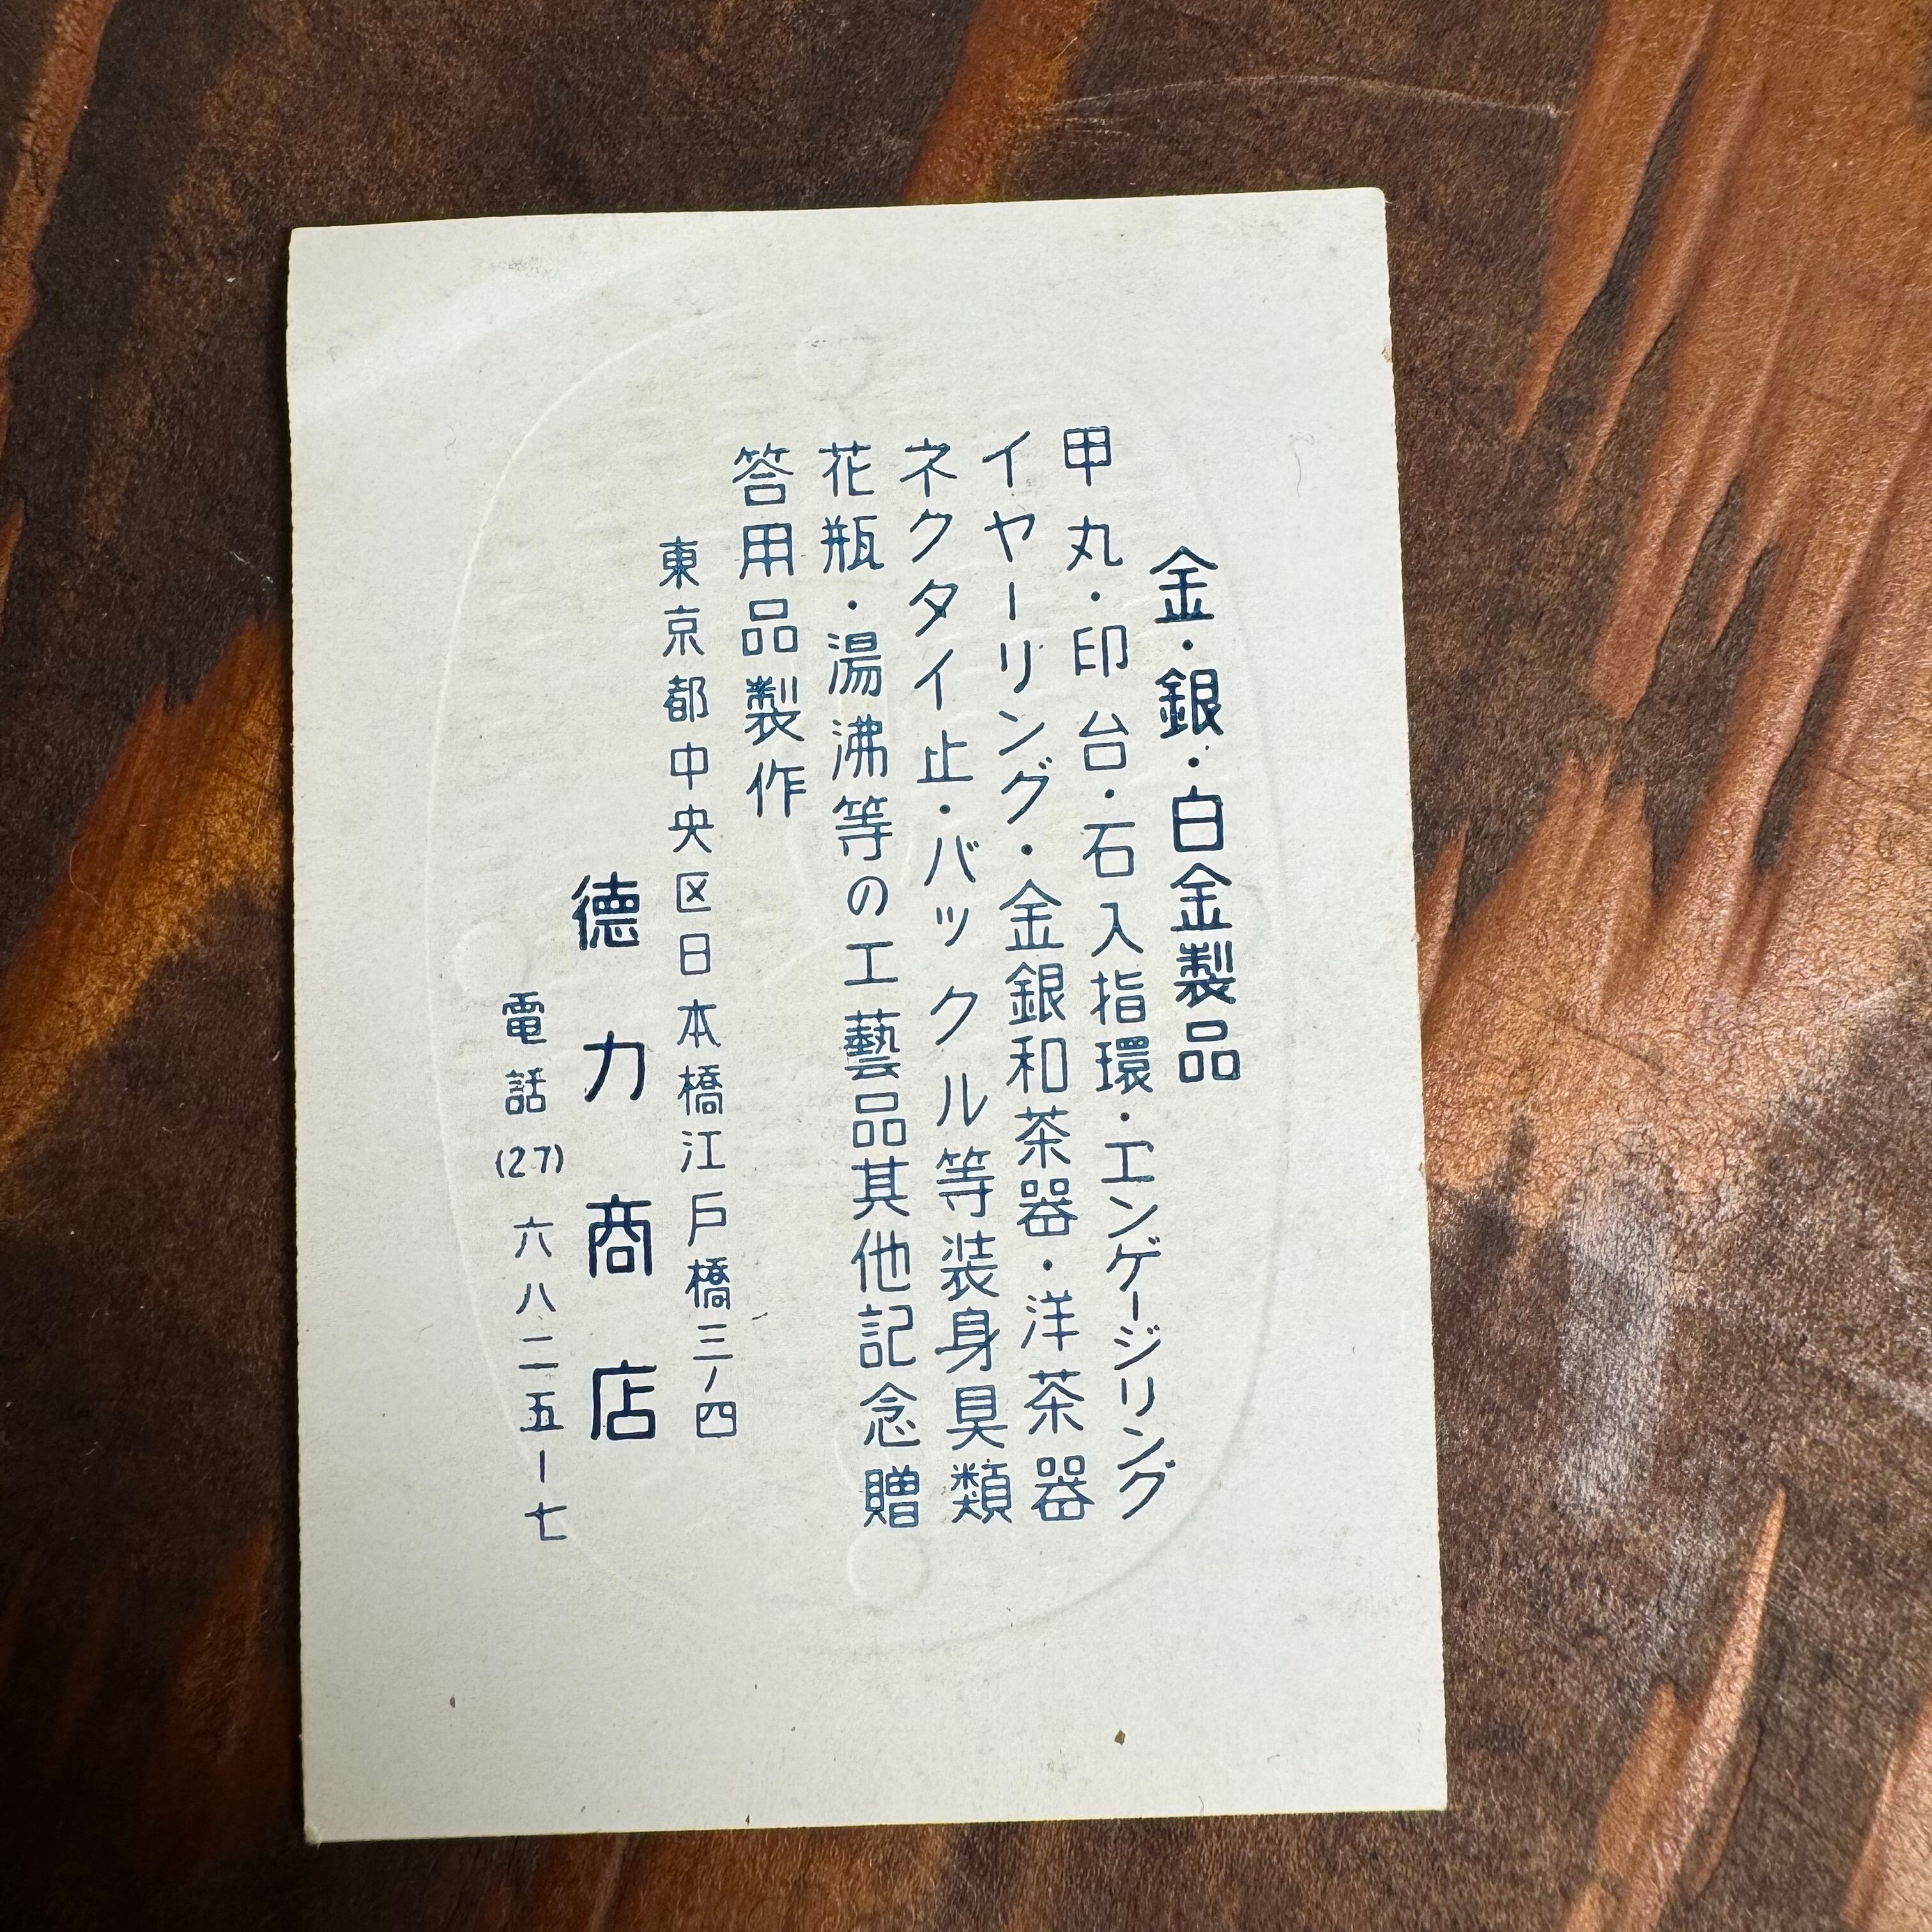 金・銀・白金製品
甲丸・印台・石入指環・エンゲージリング
イヤーリング・金銀和茶器・洋茶器
ネクタイ止・バックル等装身具類
花瓶・湯沸等の工藝品其他記念贈
答用品製作
東京都中央区日本橋江戸橋三ノ四
徳力商店
電話(27)六八二五ー七